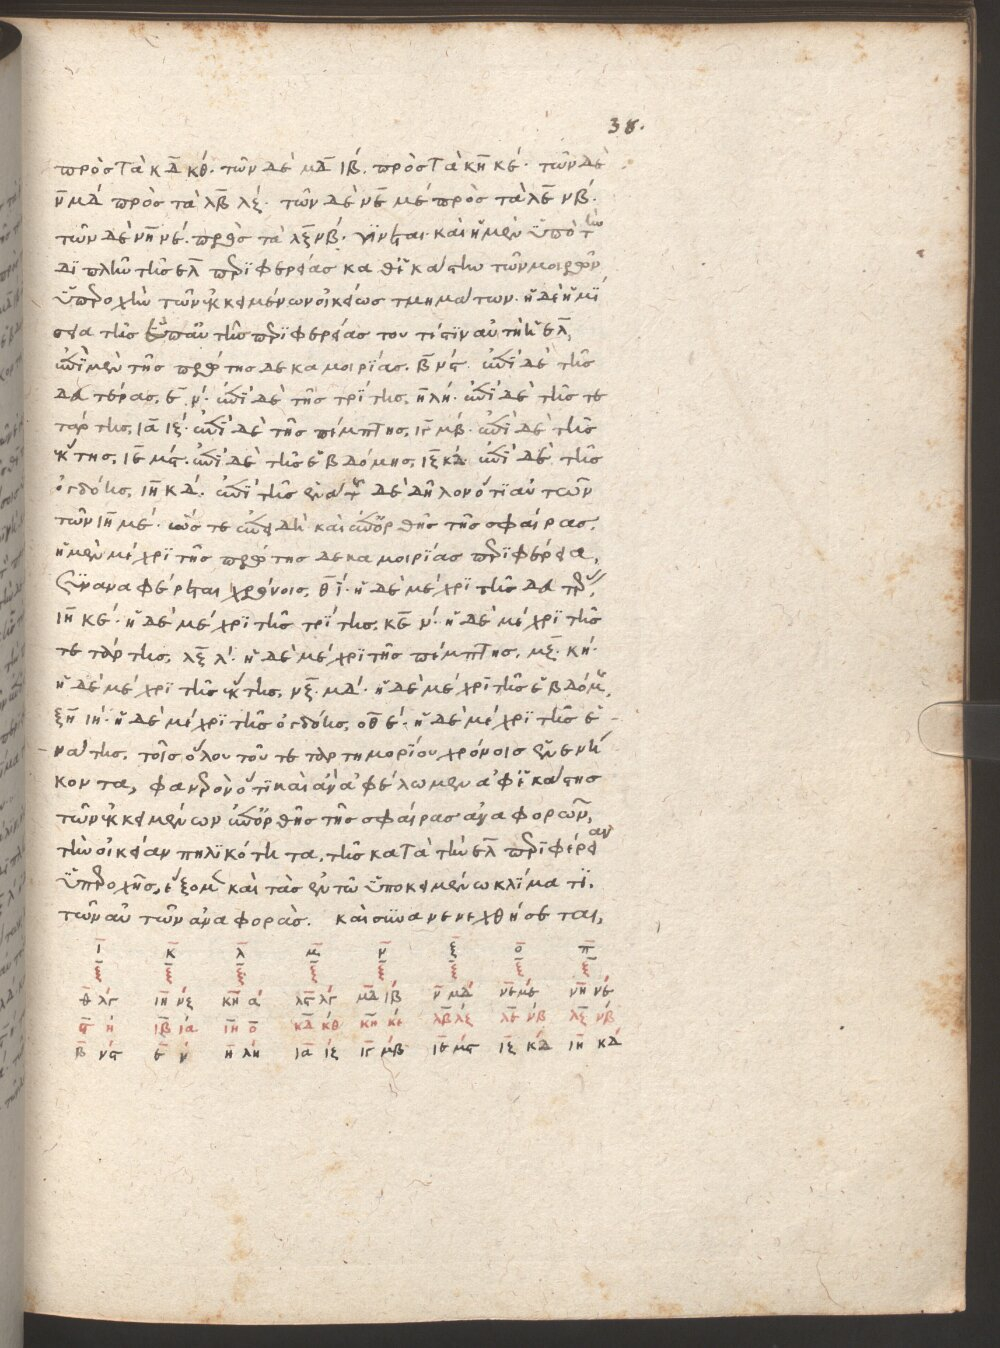 38.
πρὸς τὰ κ̅δ̅ κθ́. τῶν δὲ μ̅δ̅ ιβ́. πρὸς τὰ κ̅η̅ κέ. τῶν δὲ
ν̅ μδ́ πρὸς τὰ λ̅β̅ λξ́. τῶν δὲ ν̅ε̅ μέ πρὸς τὰ λ̅ε̅ νβ́.
τῶν δὲ ν̅η̅ νέ. πρὸς τὰ λ̅ξ̅ νβ́. γίνεται καὶ ἡ μὲν ὑπὸ τὴν
διπλῆν τῆς ε̅λ̅ περιφερείας καθ' ἑκάστην τῶν μοιρῶν
ὑπεροχὴν τῶν ἐκκειμένων οἰκείως τμημάτων. ἡ δὲ ἡμί
σεια τῆς ὑπ' αὐτὴν περιφερείας τουτέστιν αὐτὴ ἡ ε̅λ̅,
ἐπὶ μὲν τῆς πρώτης δεκαμοιρίας. β̅ νϛ́. ἐπὶ δὲ τῆς
δευτέρας, ε̅ ν́. ἐπὶ δὲ τῆς τρίτης, η̅ λή. ἐπὶ δὲ τῆς τε
τάρτης, ι̅α̅ ιξ́. ἐπὶ δὲ τῆς πέμπτης, ι̅γ̅ μβ́. ἐπὶ δὲ τῆς
ἕκτης, ι̅ε̅ μϛ́. ἐπὶ δὲ τῆς ἑβδόμης, ι̅ξ̅ κδ́. ἐπὶ δὲ τῆς
ὀγδόης, ι̅η̅ κδ́. ἐπὶ τῆς ἐνάτης δὲ δῆλον ὅτι αὐτῶν
τῶν ι̅η̅ μέ. ὥστε ἐπειδὴ καὶ ἐπ' ὀρθῆς τῆς σφαίρας.
ἡ μὲν μέχρι τῆς πρώτης δεκαμοιρίας περιφέρεια,
συναναφέρεται χρόνοις, θ̅ ί. ἡ δὲ μέχρι τῆς δευτέρας,
ι̅η̅ κέ. ἡ δὲ μέχρι τῆς τρίτης, κ̅ξ̅ ν́. ἡ δὲ μέχρι τῆς
τετάρτης, λ̅ξ̅ λ́. ἡ δὲ μέχρι τῆς πέμπτης, μ̅ξ̅ κή.
ἡ δὲ μέχρι τῆς ἕκτης, ν̅ξ̅ μδ́. ἡ δὲ μέχρι τῆς ἑβδόμης,
ξ̅η̅ ιή. ἡ δὲ μέχρι τῆς ὀγδόης, ο̅θ̅ έ. ἡ δὲ μέχρι τῆς ἐ-
νάτης, τοῖς ὅλου τοῦ τεταρτημορίου χρόνοις ἐνενή
κοντα, φανερὸν ὅτι καὶ ἀνἀφέλωμεν ἀφ' ἑκάστης
τῶν ἐκκειμένων ἐπ' ὀρθῆς τῆς σφαίρας ἀναφορῶν,
τὴν οἰκείαν πηλικότητα, τῆς κατὰ τὴν ε̅λ̅ περιφέρειαν
ὑπεροχῆς, ἕξομεν καὶ τὰς ἐν τῷ ὑποκειμένω κλίματι,
τῶν αὐτῶν ἀναφοράς. καὶ συνανενεχθήσεται,
ι̅ κ̅ λ̅ μ̅ ν̅ ξ̅ ο̅ π̅
ξ̅ ξ̅ ξ̅ ξ̅ ξ̅ ξ̅ ξ̅ ξ̅
θ̅ λγ́ ι̅η̅ νξ́ κ̅η̅ ά λ̅ϛ̅ λγ́ μ̅δ̅ ιβ́ ν̅ μδ́ ν̅ε̅ μέ ν̅η̅ νέ
ϛ̅ ή ι̅β̅ ιά ι̅η̅ ο̅ κ̅δ̅ κθ́ κ̅η̅ κέ λ̅β̅ λξ́ λ̅ε̅ νβ́ λ̅ξ̅ νβ́
β̅ νϛ́ ε̅ ν́ η̅ λή ι̅α̅ ιξ́ ι̅γ̅ μβ́ ι̅ε̅ μϛ́ ι̅ξ̅ κδ́ ι̅η̅ κδ́